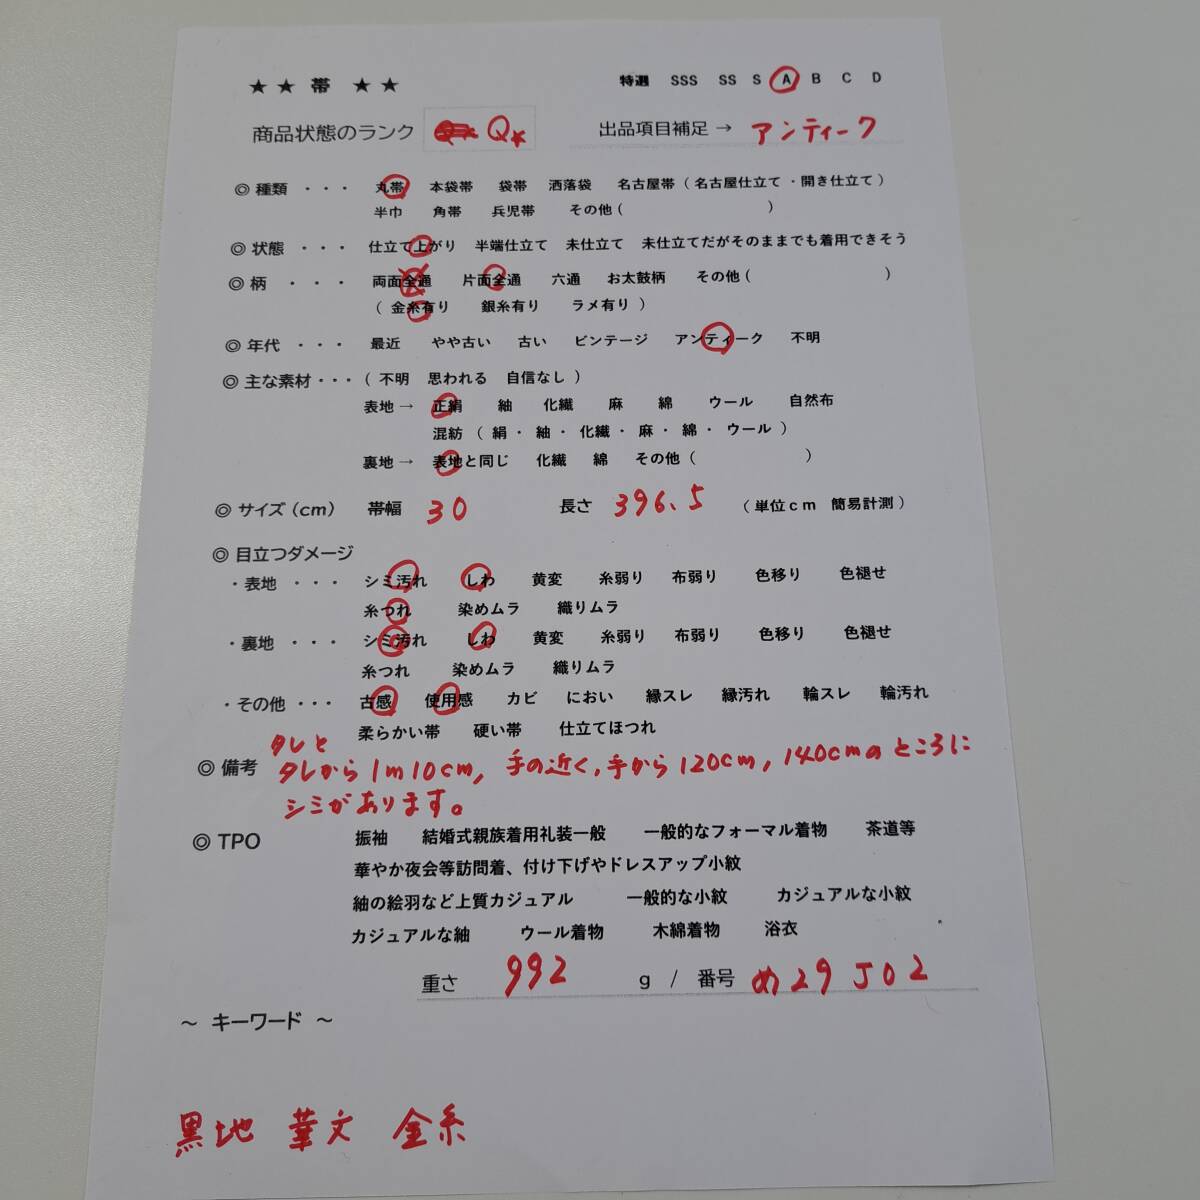 ★ ★ 帯 ★ ★ 特選 SSS SS S A B C D
商品状態のランク Q★ 出品項目補足 → アンティーク
◎ 種類 ・・・ 丸帯 本袋帯 袋帯 洒落袋 名古屋帯 ( 名古屋仕立て ・開き仕立て )
半巾 角帯 兵児帯 その他 ( )
◎ 状態 ・・・ 仕立て上がり 半端仕立て 未仕立て 未仕立てだがそのままでも着用できそう
◎ 柄 ・・・ 両面全通 片面全通 六通 お太鼓柄 その他 ( )
( 金糸有り 銀糸有り ラメ有り )
◎ 年代 ・・・ 最近 やや古い 古い ビンテージ アンティーク 不明
◎ 主な素材・・・ ( 不明 思われる 自信なし )
表地 → 正絹 紬 化繊 麻 綿 ウール 自然布
混紡 ( 絹・ 紬・ 化繊・ 麻・ 綿・ ウール )
裏地 → 表地と同じ 化繊 綿 その他 ( )
◎ サイズ (cm) 帯幅 30 長さ 396.5 (単位cm 簡易計測)
◎ 目立つダメージ
・表地 ・・・ シミ汚れ しわ 黄変 糸弱り 布弱り 色移り 色褪せ
糸つれ 染めムラ 織りムラ
・裏地 ・・・ シミ汚れ しわ 黄変 糸弱り 布弱り 色移り 色褪せ
糸つれ 染めムラ 織りムラ
・その他 ・・・ 古感 使用感 カビ におい 縁スレ 縁汚れ 輪スレ 輪汚れ
柔らかい帯 硬い帯 仕立てほつれ
タレと
◎ 備考 タレから1m10cm, 手の近く,手から120cm, 140cmのところに
シミがあります。
◎ TPO 振袖 結婚式親族着用礼装一般 一般的なフォーマル着物 茶道等
華やか夜会等訪問着、付け下げやドレスアップ小紋
紬の絵羽など上質カジュアル 一般的な小紋 カジュアルな小紋
カジュアルな紬 ウール着物 木綿着物 浴衣
重さ 992 g / 番号 め29J02
～ キーワード ～
黒地 華文 金糸